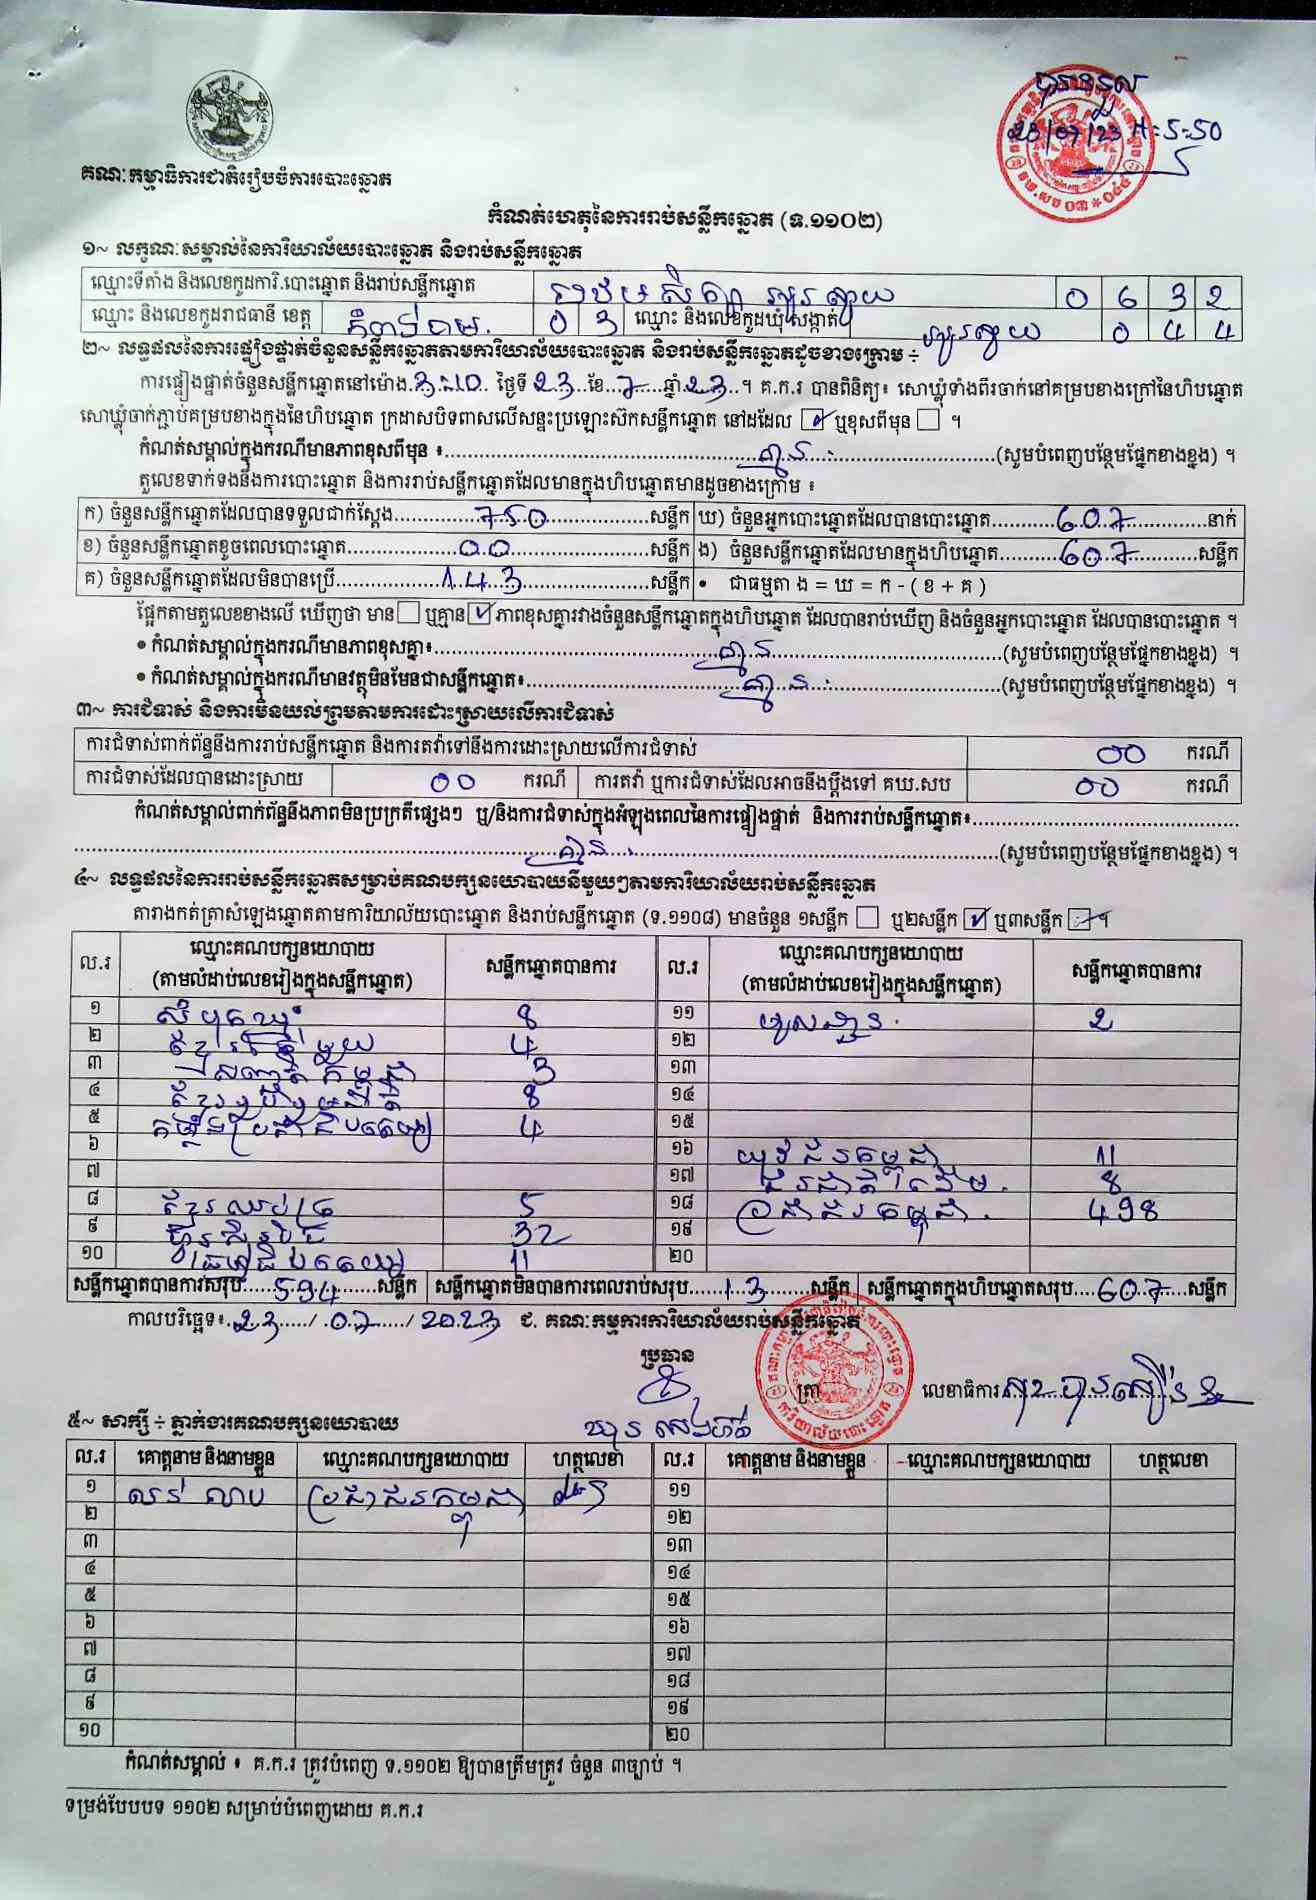 បានទទួល
23/07/23 H=5-50
គណៈកម្មាធិការជាតិរៀបចំការបោះឆ្នោត
កំណត់ហេតុនៃការរាប់សន្លឹកឆ្នោត (ទ.១១០២)
១~ លក្ខណៈសម្គាល់នៃការិយាល័យបោះឆ្នោត និងរាប់សន្លឹកឆ្នោត
ឈ្មោះទីតាំង និងលេខកូដការិ.បោះឆ្នោត និងរាប់សន្លឹកឆ្នោត 0 6 3 2
ឈ្មោះ និងលេខកូដរាជធានី ខេត្ត កំពង់ចាម. 0 3 ឈ្មោះ និងលេខកូដឃុំ សង្កាត់ 0 4 4
២~ លទ្ធផលនៃការផ្ទៀងផ្ទាត់ចំនួនសន្លឹកឆ្នោតតាមការិយាល័យបោះឆ្នោត និងរាប់សន្លឹកឆ្នោតដូចខាងក្រោម ÷
ការផ្ទៀងផ្ទាត់ចំនួនសន្លឹកឆ្នោតនៅម៉ោង 3:10 ថ្ងៃទី 23 ខែ 7 ឆ្នាំ 23 ។ គ.ក.រ បានពិនិត្យ៖ សោឃ្លុំទាំងពីរចាក់នៅគម្របខាងក្រៅនៃហិបឆ្នោត
សោឃ្លុំចាក់ភ្ជាប់គម្របខាងក្នុងនៃហិបឆ្នោត ក្រដាសបិទពាសលើសន្ទះប្រឡោះស៊កសន្លឹកឆ្នោត នៅដដែល ☑ ឬខុសពីមុន ☐ ។
កំណត់សម្គាល់ក្នុងករណីមានភាពខុសពីមុន ៖ គ្មាន (សូមបំពេញបន្ថែមផ្នែកខាងខ្នង) ។
តួលេខទាក់ទងនឹងការបោះឆ្នោត និងការរាប់សន្លឹកឆ្នោតដែលមានក្នុងហិបឆ្នោតមានដូចខាងក្រោម ៖
ក) ចំនួនសន្លឹកឆ្នោតដែលបានទទួលជាក់ស្តែង 750 សន្លឹក ឃ) ចំនួនអ្នកបោះឆ្នោតដែលបានបោះឆ្នោត 607 នាក់
ខ) ចំនួនសន្លឹកឆ្នោតខូចពេលបោះឆ្នោត 00 សន្លឹក ង) ចំនួនសន្លឹកឆ្នោតដែលមានក្នុងហិបឆ្នោត 607 សន្លឹក
គ) ចំនួនសន្លឹកឆ្នោតដែលមិនបានប្រើ 143 សន្លឹក • ជាធម្មតា ង = ឃ = ក - ( ខ + គ )
ផ្អែកតាមតួលេខខាងលើ ឃើញថា មាន ☐ ឬគ្មាន ☑ ភាពខុសគ្នារវាងចំនួនសន្លឹកឆ្នោតក្នុងហិបឆ្នោត ដែលបានរាប់ឃើញ និងចំនួនអ្នកបោះឆ្នោត ដែលបានបោះឆ្នោត ។
• កំណត់សម្គាល់ក្នុងករណីមានភាពខុសគ្នា៖ គ្មាន (សូមបំពេញបន្ថែមផ្នែកខាងខ្នង) ។
• កំណត់សម្គាល់ក្នុងករណីមានវត្ថុមិនមែនជាសន្លឹកឆ្នោត៖ គ្មាន (សូមបំពេញបន្ថែមផ្នែកខាងខ្នង) ។
៣~ ការជំទាស់ និងការមិនយល់ព្រមតាមការដោះស្រាយលើការជំទាស់
ការជំទាស់ពាក់ព័ន្ធនឹងការរាប់សន្លឹកឆ្នោត និងការតវ៉ាទៅនឹងការដោះស្រាយលើការជំទាស់ 00 ករណី
ការជំទាស់ដែលបានដោះស្រាយ 00 ករណី ការតវ៉ា ឬការជំទាស់ដែលអាចនឹងប្តឹងទៅ គឃ.សប 00 ករណី
កំណត់សម្គាល់ពាក់ព័ន្ធនឹងភាពមិនប្រក្រតីផ្សេងៗ ឬ/និងការជំទាស់ក្នុងអំឡុងពេលនៃការផ្ទៀងផ្ទាត់ និងការរាប់សន្លឹកឆ្នោត៖
គ្មាន (សូមបំពេញបន្ថែមផ្នែកខាងខ្នង) ។
៤~ លទ្ធផលនៃការរាប់សន្លឹកឆ្នោតសម្រាប់គណបក្សនយោបាយនីមួយៗតាមការិយាល័យរាប់សន្លឹកឆ្នោត
តារាងកត់ត្រាសំឡេងឆ្នោតតាមការិយាល័យបោះឆ្នោត និងរាប់សន្លឹកឆ្នោត (ទ.១១០៨) មានចំនួន ១សន្លឹក ☐ ឬ២សន្លឹក ☑ ឬ៣សន្លឹក ☐ ។
ល.រ ឈ្មោះគណបក្សនយោបាយ (តាមលំដាប់លេខរៀងក្នុងសន្លឹកឆ្នោត) សន្លឹកឆ្នោតបានការ ល.រ ឈ្មោះគណបក្សនយោបាយ (តាមលំដាប់លេខរៀងក្នុងសន្លឹកឆ្នោត) សន្លឹកឆ្នោតបានការ
១ សំបុកឃ្មុំ 8 ១១ 2
២ ខ្មែររួបរួម 4 ១២
៣ សញ្ជាតិកម្ពុជា 3 ១៣
៤ 8 ១៤
៥ កម្លាំងប្រជាធិបតេយ្យ 4 ១៥
៦ ១៦ យុវជនកម្ពុជា 11
៧ ១៧ ជនជាតិដើម 8
៨ ខ្មែរឈប់ក្រ 5 ១៨ ប្រជាជនកម្ពុជា 498
៩ ហ្វ៊ុនស៊ិនប៉ិច 32 ១៩
១០ ធម្មាធិបតេយ្យ 11 ២០
សន្លឹកឆ្នោតបានការសរុប 594 សន្លឹក សន្លឹកឆ្នោតមិនបានការពេលរាប់សរុប 13 សន្លឹក សន្លឹកឆ្នោតក្នុងហិបឆ្នោតសរុប 607 សន្លឹក
កាលបរិច្ឆេទ៖ 23 / 07 / 2023 ជ. គណៈកម្មការការិយាល័យរាប់សន្លឹកឆ្នោត
ប្រធាន
ត្រា លេខាធិការ
៥~ សាក្សី ÷ ភ្នាក់ងារគណបក្សនយោបាយ
ល.រ គោត្តនាម និងនាមខ្លួន ឈ្មោះគណបក្សនយោបាយ ហត្ថលេខា ល.រ គោត្តនាម និងនាមខ្លួន ឈ្មោះគណបក្សនយោបាយ ហត្ថលេខា
១ ប្រជាជនកម្ពុជា ១១
២ ១២
៣ ១៣
៤ ១៤
៥ ១៥
៦ ១៦
៧ ១៧
៨ ១៨
៩ ១៩
១០ ២០
កំណត់សម្គាល់ ៖ គ.ក.រ ត្រូវបំពេញ ទ.១១០២ ឱ្យបានត្រឹមត្រូវ ចំនួន ៣ច្បាប់ ។
ទម្រង់បែបបទ ១១០២ សម្រាប់បំពេញដោយ គ.ក.រ